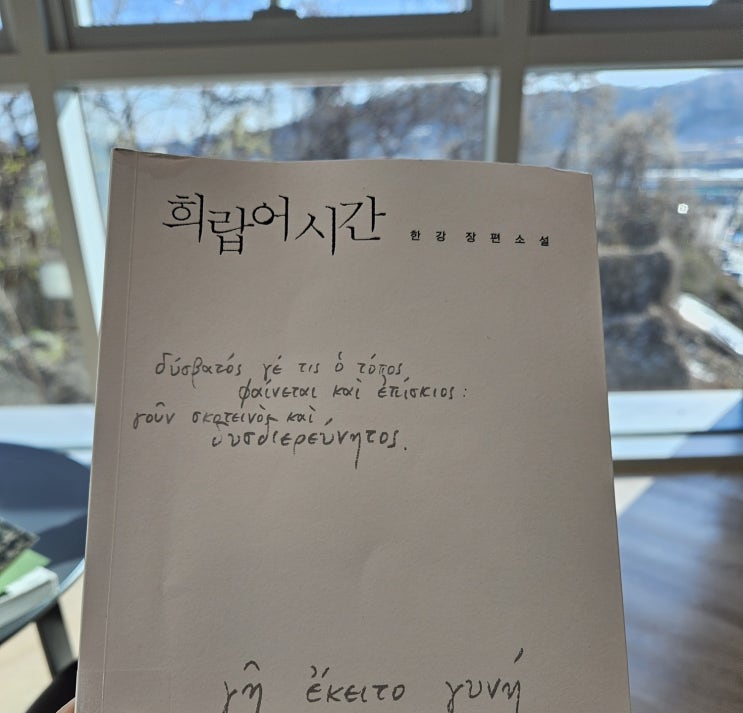 희랍어 시간 한강 장편소설
δύσβατός γέ τις ὁ τόπος
φαίνεται καὶ ἐπίσκιος:
γοῦν σκοτεινὸς καὶ
δυσδιερεύνητος.
γῆ ἔκειτο γυνή